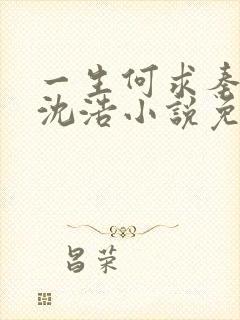 一生何求秦
沈浩小説免
昌荣